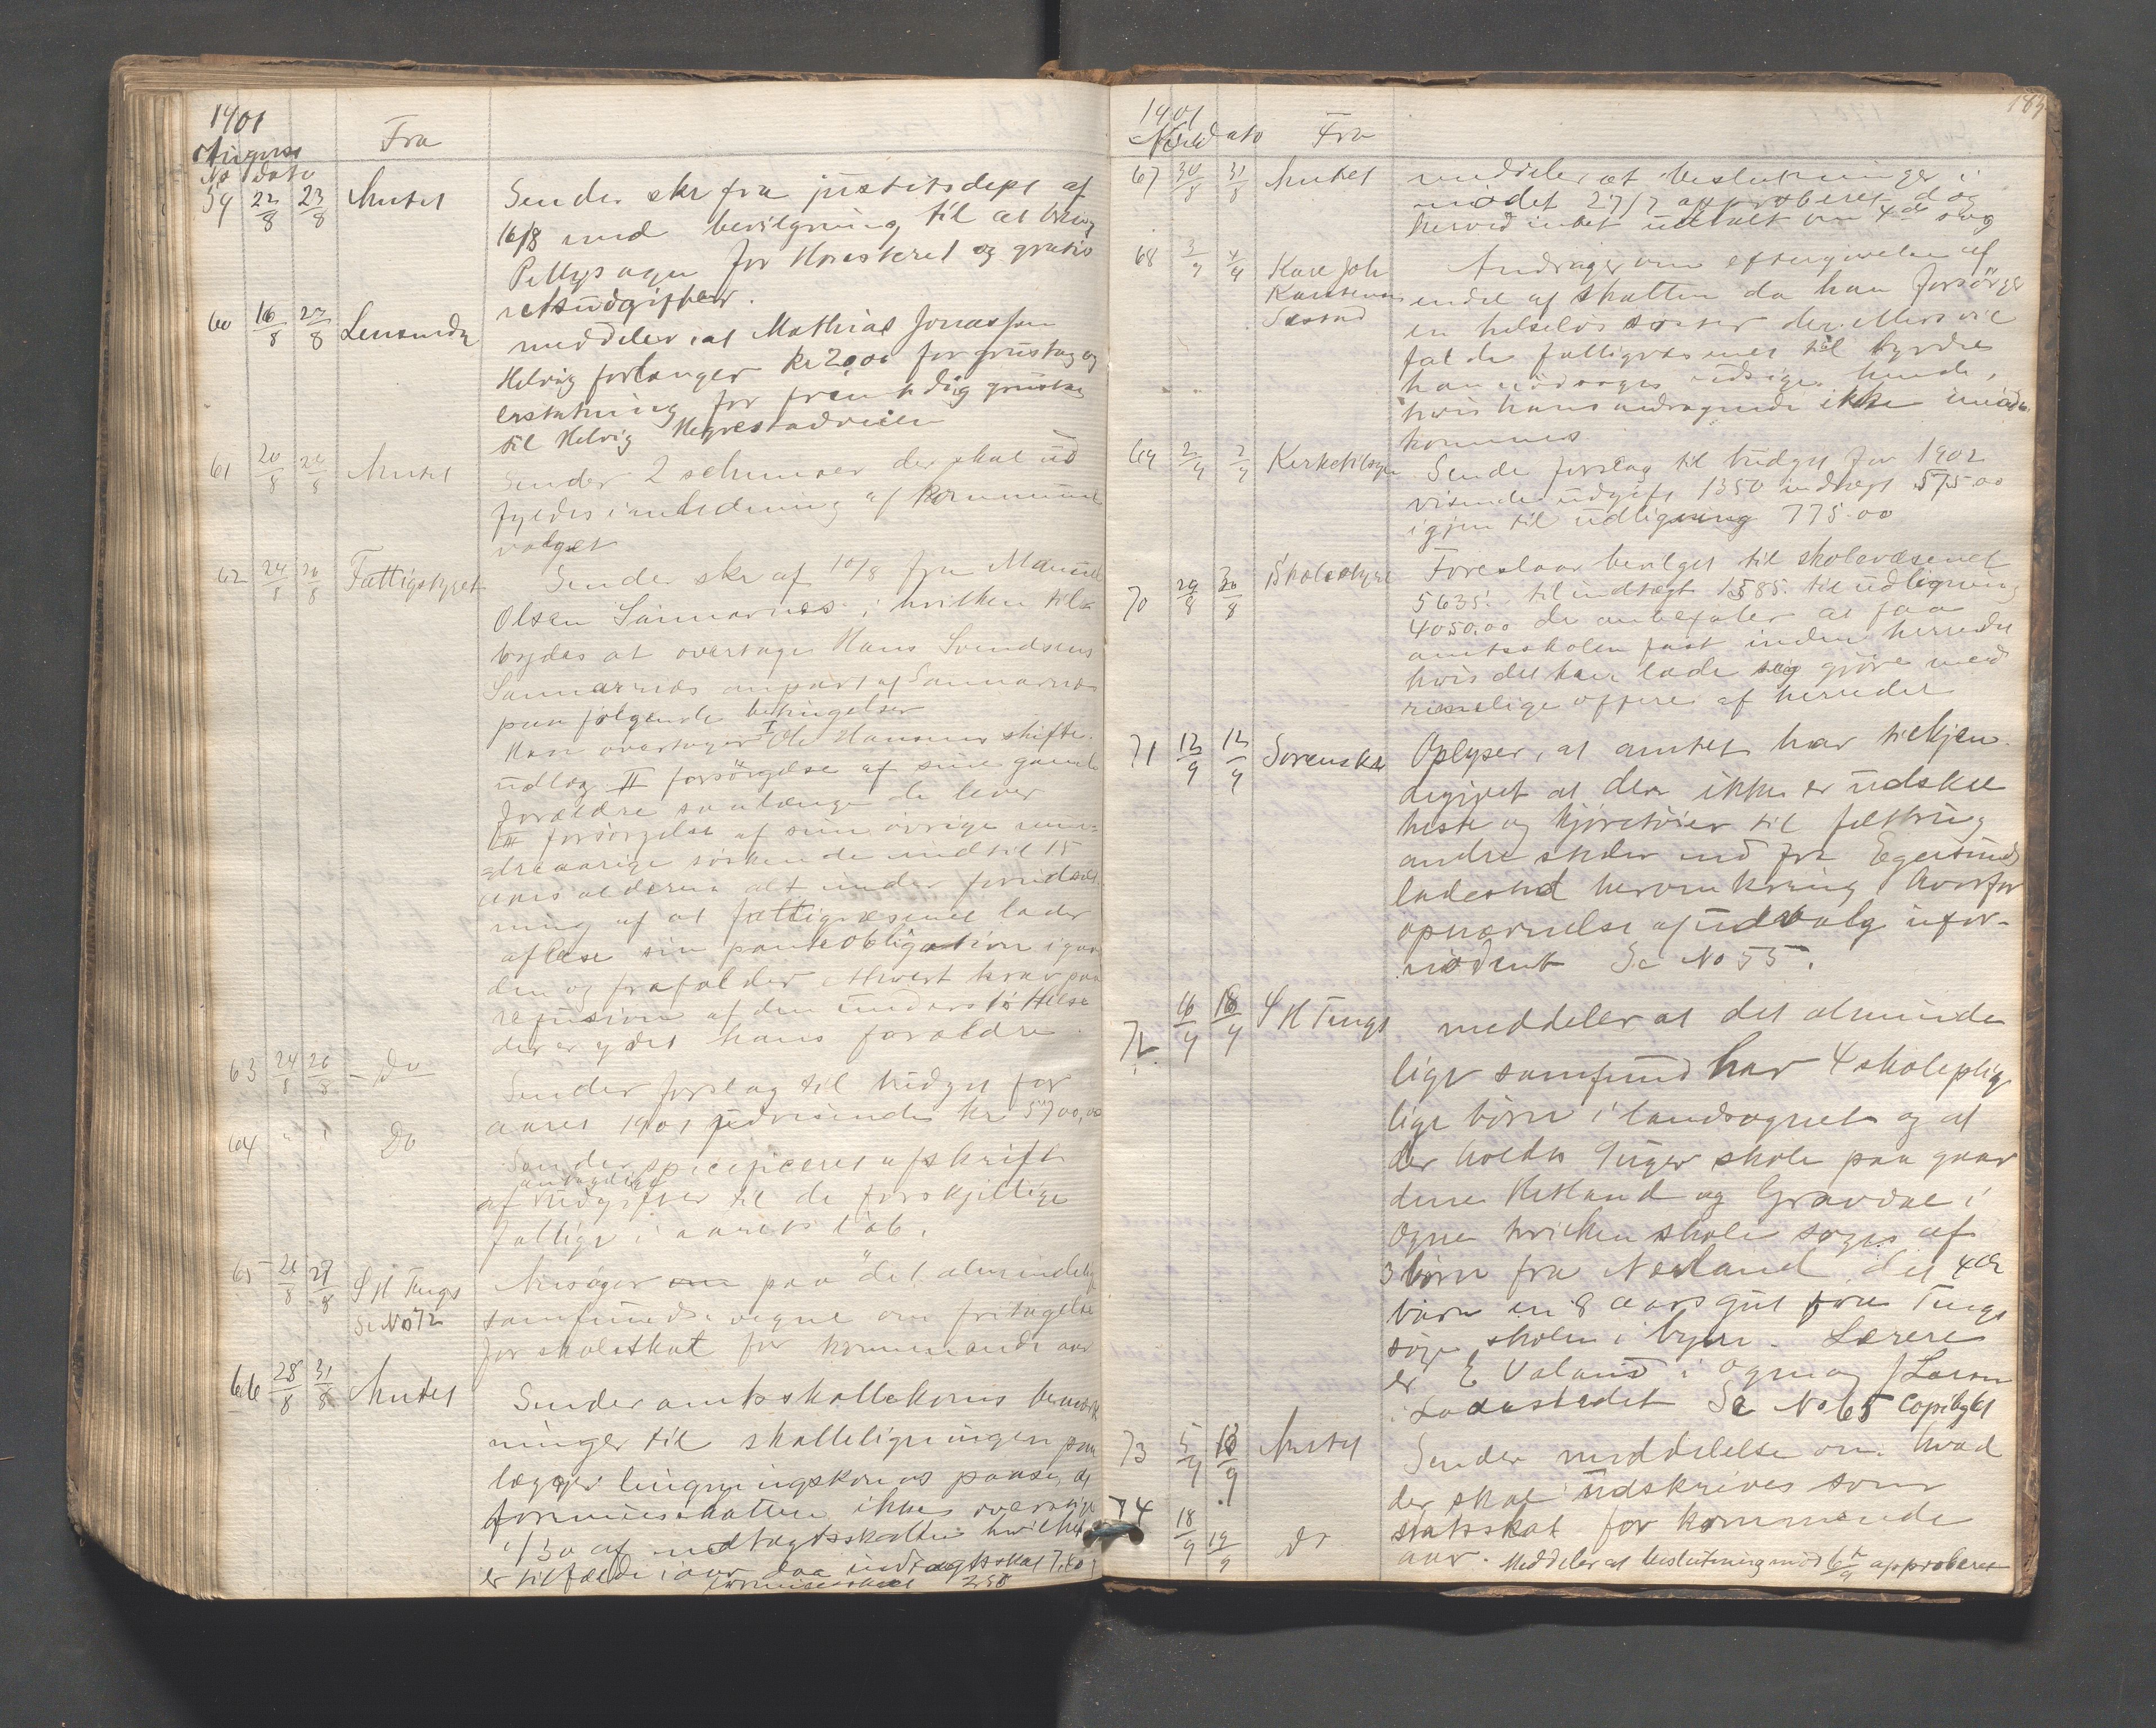 1901
August
No Dato Fra
59 22/8 23/8 Amtet Sender skr fra justitsdept af
16/8 med bevilgning til at bring
for Høiesteret og gratis
retsudgifter.
60 16/8 27/8 Lensmdn meddeler at Mathias Jonassen
Helvig forlanger kr 20,00 for grustag og
erstatning for fremtidig grustag
til Helvig Hegrestadveien
61 20/8 26/8 Amtet Sender 2 schemaer der skal ud
fyldes i anledning af kommune
valget
62 24/8 26/8 Fattigstyret Sender skr af 10/8 fra
Olsen i hvilken til
bydes at overtage Hans Svendsens
anpart af
paa følgende betingelser
Han overtager I Ole Hansens skifte
udlæg II forsørgelse af sine gamle
forældre saalænge de lever
III forsørgelse af sine øvrige
aarige søskende indtil 15
aars alderen alt under forudsæt
ning af at fattigvæsenet lader
aflæse sin panteobligation i gaar
den og frafalder ethvert krav paa
refusion af den understøttelse
der er ydet hans forældre
63 24/8 26/8 - Do Sender forslag til budget for
aaret 1901 udvisende kr 5700,00
64 " " Do Sender specificeret afskrift
af udgifter til de forskjellige
fattige i aarets løb.
65 26/8 27/8 S H Tengs Ansøger om paa det almindelige
Se No 72 samfunds vegne om fritagelse
for skoleskat for kommende aar
66 28/8 31/8 Amtet Sender amtsskattekoms bemærk
ninger til skatteligningen paa
lægger ligningskom at passe, at
formueskatten ikke overstige
1/30 af indtægtsskatten hvilket
er tilfælde i aar daa indtægtsskat 7,80
formueskat 250
183
1901
No Dato Fra
67 30/8 31/8 Amtet meddeler at beslutninger i
mødet 27/7 approberet dog
herved intet udtalt om 4de sag
68 3/9 4/9 Karl Joh Andrager om eftergivelse af
endel af skatten da han forsørger
en helseløs søster der ellers vil
falde fattigvæsenet til byrde
han nødsages udsige hende,
hvis hans andragende ikke imøde
kommes
69 2/9 7/9 Kirketilsyn Sender forslag til budget for 1902
visende udgift 1350 indtægt 575.00
igjen til udligning 775.00
70 29/8 30/8 Skolestyre Foreslaar bevilget til skolevæsenet
5635. til indtægt 1585. til udligning
4050.00 de anbefaler at faa
amtsskolen fast inden herredet
hvis det kan lade sig gjøre med
rimelige offere af herredet
71 12/9 12/9 Sorenskr Oplyser, at amtet har tilkjen
degivet at der ikke er udskre
heste og kjøretøier til felttrin
andre steder end fra Egersund
ladested heromkring hvorfor
opnævnelse af udvalg ufor-
nødent Se No 55.
72 16/9 18/9 S H Tengs meddeler at det alminde
lige samfund har 4 skoleplig
tige børn i landsognet og at
der holdes 9 uger skole paa gaar
dene Hetland og Gravdal i
Ogne hvilken skole søges af
3 børn fra Nesland, det 4de
barn en 8 aars gut fra Tengs
søger skolen i byen. Lærere
er E Valand i Ogne og J Larsen
i Ladestedet Se No 65 Copibyket
73 5/9 18/9 Amtet Sender meddelelse om hvad
der skal udskrives som
statsskat for kommende
aar.
74 18/9 19/9 Do Meddeler at beslutning mød 6/9 approberet